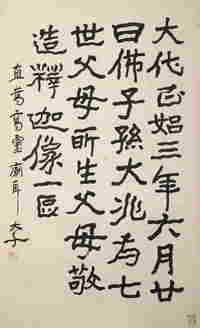 大代正始三年六月廿
日佛子孫大兆为七
世父母所生父母敬
造釋迦像一區
嵩高靈廟